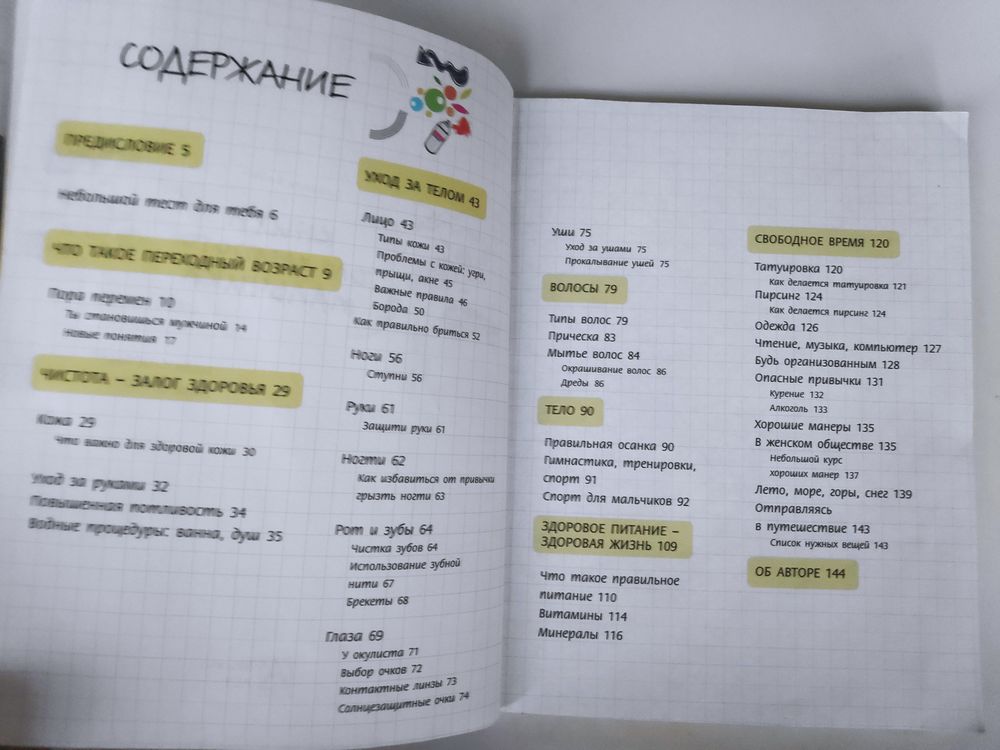 СОДЕРЖАНИЕ
ПРЕДИСЛОВИЕ 5
Небольшой тест для тебя 6
ЧТО ТАКОЕ ПЕРЕХОДНЫЙ ВОЗРАСТ 9
Пора перемен 10
Ты становишься мужчиной 14
Новые понятия 17
ЧИСТОТА – ЗАЛОГ ЗДОРОВЬЯ 29
Кожа 29
Что важно для здоровой кожи 30
Уход за руками 32
Повышенная потливость 34
Водные процедуры: ванна, душ 35
УХОД ЗА ТЕЛОМ 43
Лицо 43
Типы кожи 43
Проблемы с кожей: угри,
прыщи, акне 45
Важные правила 46
Борода 50
Как правильно бриться 52
Ноги 56
Ступни 56
Руки 61
Защити руки 61
Ногти 62
Как избавиться от привычки
грызть ногти 63
Рот и зубы 64
Чистка зубов 64
Использование зубной
нити 67
Брекеты 68
Глаза 69
У окулиста 71
Выбор очков 72
Контактные линзы 73
Солнцезащитные очки 74
Уши 75
Уход за ушами 75
Прокалывание ушей 75
ВОЛОСЫ 79
Типы волос 79
Прическа 83
Мытье волос 84
Окрашивание волос 86
Дреды 86
ТЕЛО 90
Правильная осанка 90
Гимнастика, тренировки,
спорт 91
Спорт для мальчиков 92
ЗДОРОВОЕ ПИТАНИЕ –
ЗДОРОВАЯ ЖИЗНЬ 109
Что такое правильное
питание 110
Витамины 114
Минералы 116
СВОБОДНОЕ ВРЕМЯ 120
Татуировка 120
Как делается татуировка 121
Пирсинг 124
Как делается пирсинг 124
Одежда 126
Чтение, музыка, компьютер 127
Будь организованным 128
Опасные привычки 131
Курение 132
Алкоголь 133
Хорошие манеры 135
В женском обществе 135
Небольшой курс
хороших манер 137
Лето, море, горы, снег 139
Отправляясь
в путешествие 143
Список нужных вещей 143
ОБ АВТОРЕ 144